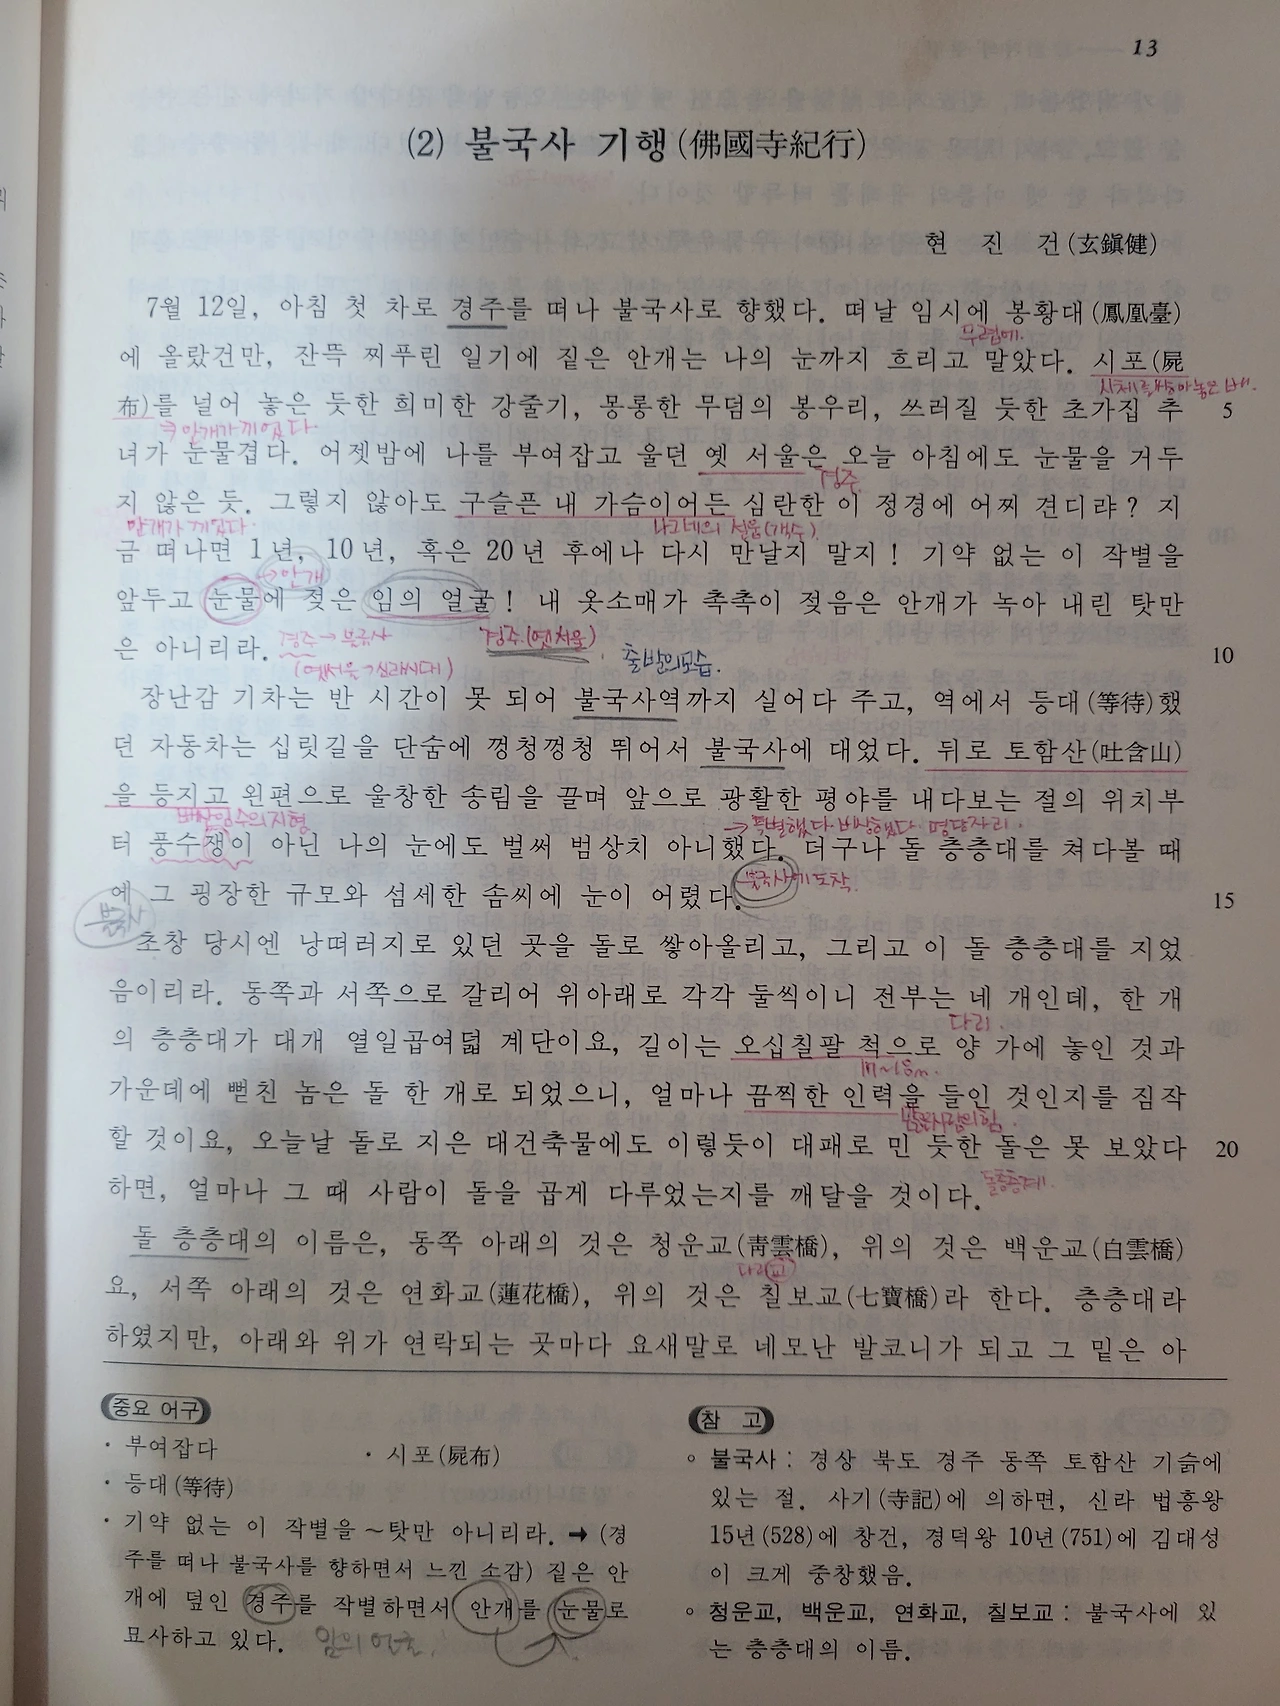 13
(2) 불국사 기행(佛國寺紀行)
현 진 건(玄鎭健)
7월 12일, 아침 첫 차로 경주를 떠나 불국사로 향했다. 떠날 임시에 봉황대(鳳凰臺)
무렵에.
에 올랐건만, 잔뜩 찌푸린 일기에 짙은 안개는 나의 눈까지 흐리고 말았다. 시포(屍
시체를 방아놓은 베.
布)를 널어 놓은 듯한 희미한 강줄기, 몽롱한 무덤의 봉우리, 쓰러질 듯한 초가집 추 5
안개가 끼었다
녀가 눈물겹다. 어젯밤에 나를 부여잡고 울던 옛 서울은 오늘 아침에도 눈물을 거두
경주.
지 않은 듯. 그렇지 않아도 구슬픈 내 가슴이어든 심란한 이 정경에 어찌 견디랴? 지
안개가 끼었다 나그네의 설움(객수).
금 떠나면 1년, 10년, 혹은 20년 후에나 다시 만날지 말지! 기약 없는 이 작별을
→안개
앞두고 눈물에 젖은 임의 얼굴! 내 옷소매가 촉촉이 젖음은 안개가 녹아 내린 탓만
경주→불국사 경주.(옛서울)
은 아니리라. 10
(옛서울→신라시대) 출발의모습.
장난감 기차는 반 시간이 못 되어 불국사역까지 실어다 주고, 역에서 등대(等待)했
던 자동차는 십릿길을 단숨에 껑청껑청 뛰어서 불국사에 대었다. 뒤로 토함산(吐含山)
을 등지고 왼편으로 울창한 송림을 끌며 앞으로 광활한 평야를 내다보는 절의 위치부
배산임수의지형 →특별했다. 비상했다. 명당자리.
터 풍수쟁이 아닌 나의 눈에도 벌써 범상치 아니했다. 더구나 돌 층층대를 쳐다볼 때
불국사에 도착.
에 그 굉장한 규모와 섬세한 솜씨에 눈이 어렸다. 15
불국사
초창 당시엔 낭떠러지로 있던 곳을 돌로 쌓아올리고, 그리고 이 돌 층층대를 지었
음이리라. 동쪽과 서쪽으로 갈리어 위아래로 각각 둘씩이니 전부는 네 개인데, 한 개
다리.
의 층층대가 대개 열일곱여덟 계단이요, 길이는 오십칠팔 척으로 양 가에 놓인 것과
17~18m.
가운데에 뻗친 놈은 돌 한 개로 되었으니, 얼마나 끔찍한 인력을 들인 것인지를 짐작
할 것이요, 오늘날 돌로 지은 대건축물에도 이렇듯이 대패로 민 듯한 돌은 못 보았다 20
하면, 얼마나 그 때 사람이 돌을 곱게 다루었는지를 깨달을 것이다.
돌층층계.
돌 층층대의 이름은, 동쪽 아래의 것은 청운교(靑雲橋), 위의 것은 백운교(白雲橋)
다리(교)
요, 서쪽 아래의 것은 연화교(蓮花橋), 위의 것은 칠보교(七寶橋)라 한다. 층층대라
하였지만, 아래와 위가 연락되는 곳마다 요새말로 네모난 발코니가 되고 그 밑은 아
중요 어구
· 부여잡다 · 시포(屍布)
· 등대(等待)
· 기약 없는 이 작별을~탓만 아니리라. ➡ (경
주를 떠나 불국사를 향하면서 느낀 소감) 짙은 안
개에 덮인 경주를 작별하면서 안개를 눈물로
묘사하고 있다. 임의 얼굴.
참 고
◦ 불국사 : 경상 북도 경주 동쪽 토함산 기슭에
있는 절. 사기(寺記)에 의하면, 신라 법흥왕
15년(528)에 창건, 경덕왕 10년(751)에 김대성
이 크게 중창했음.
◦ 청운교, 백운교, 연화교, 칠보교 : 불국사에 있
는 층층대의 이름.